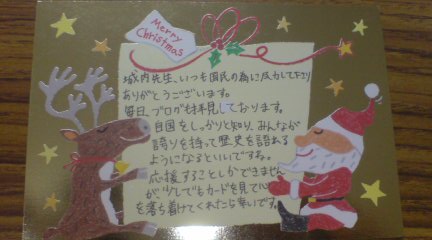 Merry
Christmas
城内先生、いつも国民の為に尽力して下さり
ありがとうございます。
毎日、ブログも拝見しております。
自国をしっかりと知り、みんなが
誇りを持って歴史を語れる
ようになるといいですね。
応援することしかできません
が、少しでもカードを見て心
を落ち着けてくれたら幸いです。